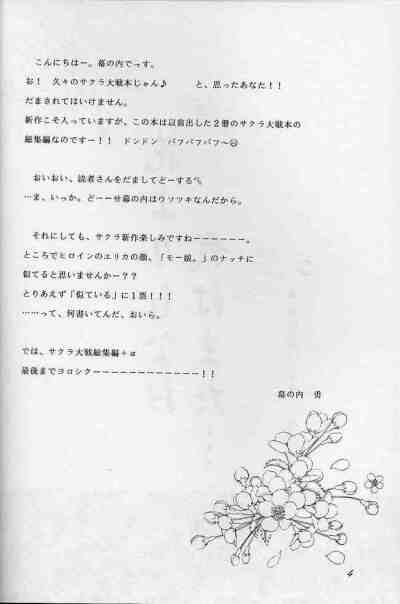 こんにちはー。幕の内でっす。
お！ 久々のサクラ大戦本じゃん♪ と、思ったあなた！！
だまされてはいけません。
新作こそ入っていますが、この本は以前出した２冊のサクラ大戦本の
総集編なのですー！！ ドンドン パフパフパフ〜☺
おいおい、読者さんをだましてどーする
…ま、いっか。どーーせ幕の内はウソツキなんだから。
それにしても、サクラ新作楽しみですねーーーーーー。
ところでヒロインのエリカの顔、「モー娘。」のナッチに
似てると思いませんかー？？
とりあえず「似ている」に１票！！！
……って、何書いてんだ、おいら。
では、サクラ大戦総集編＋α
最後までヨロシクーーーーーーーーーーーー！！
幕の内 勇
4